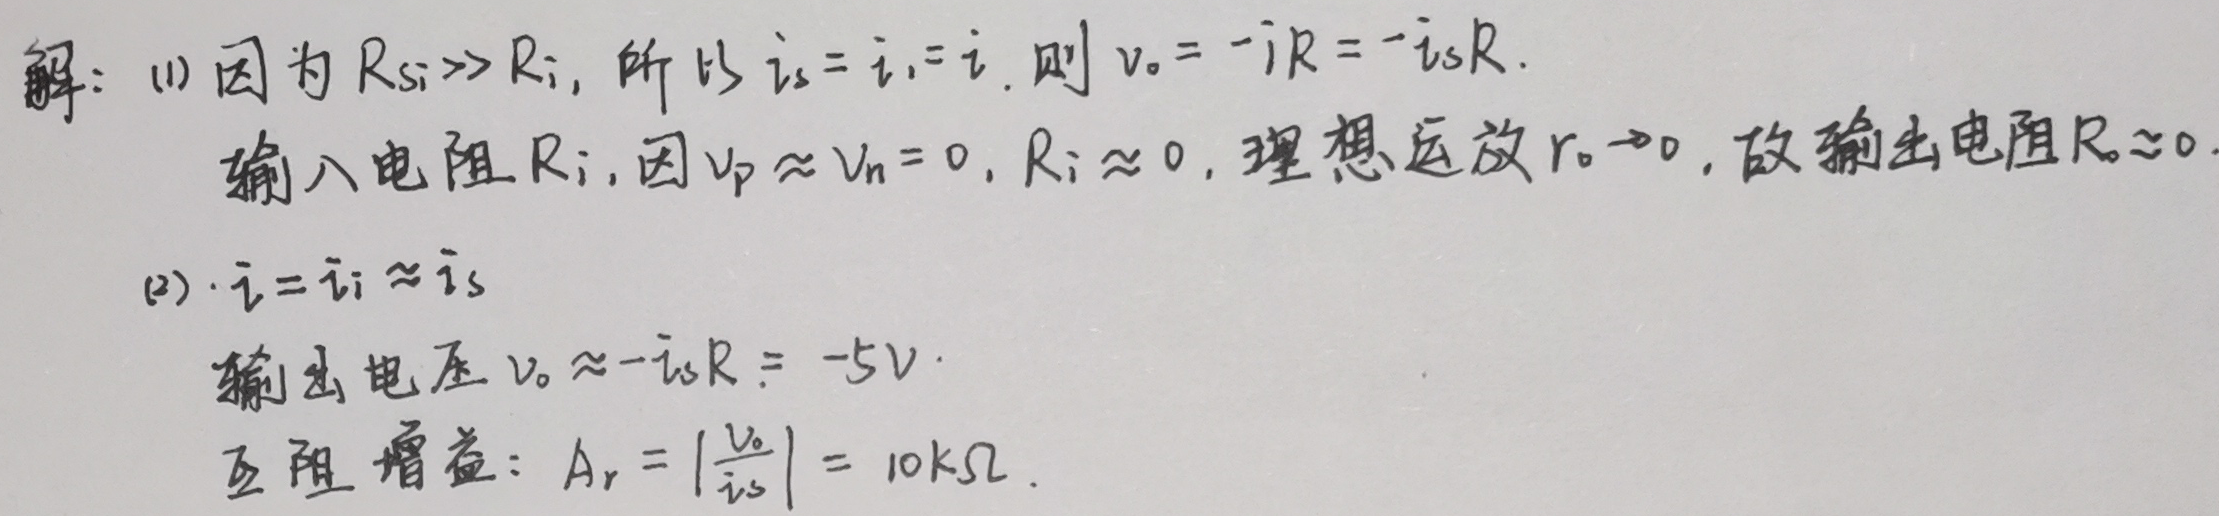 解：(1) 因为 Rsi>>Ri, 所以 is = i₁ = i. 则 v₀ = -iR = -isR.
输入电阻 Ri, 因 vp ≈ vn = 0, Ri ≈ 0, 理想运放 r₀→0, 故输出电阻 R₀≈0.
(2) · i = ii ≈ is
输出电压 v₀ ≈ -isR = -5V.
互阻增益： Ar = |v₀/is| = 10kΩ.